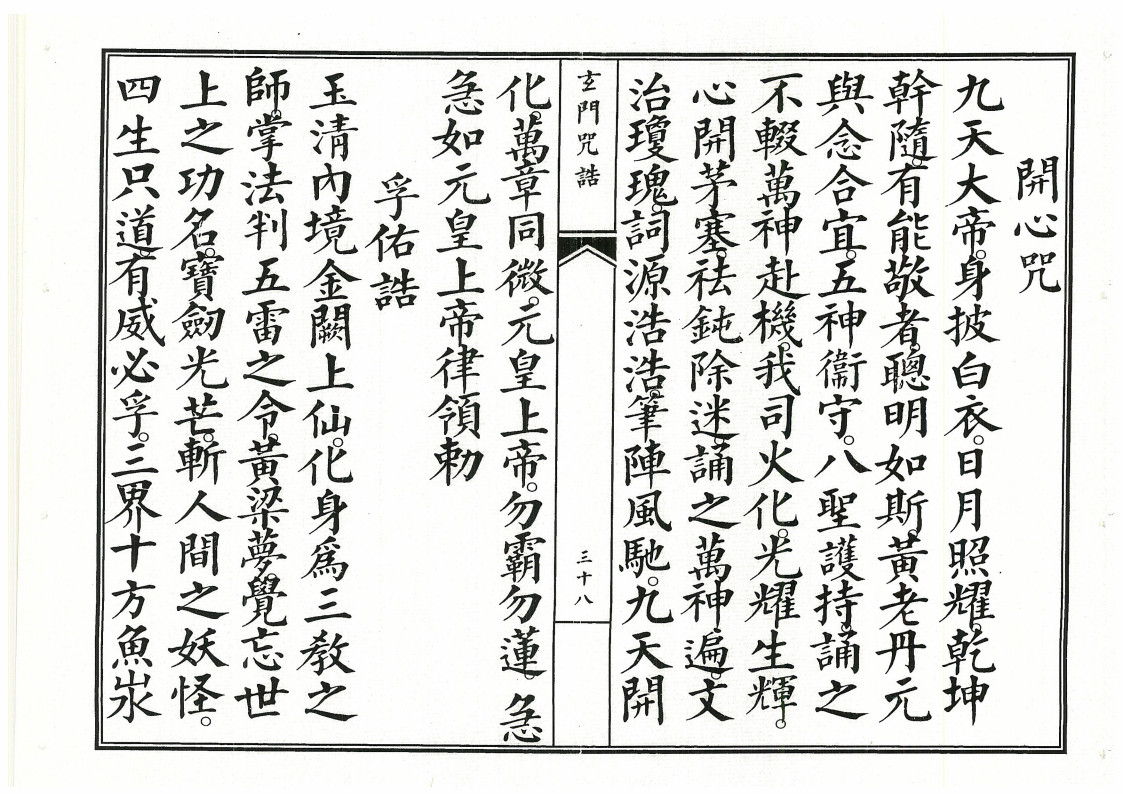 開心咒
九天大帝。身披白衣。日月照耀。乾坤
幹隨。有能敬者。聰明如斯。黃老丹元
與念合宜。五神衞守。八聖護持。誦之
不輟萬神赴機。我司火化。光耀生輝。
心開茅塞。祛鈍除迷。誦之萬神遍。文
治瓊瑰。詞源浩浩。筆陣風馳。九天開
玄門咒誥
三十八
化。萬章同微。元皇上帝。勿霸勿蓮。急
急如元皇上帝律領勅
孚佑誥
玉清內境金闕上仙。化身爲三教之
師。掌法判五雷之令。黃梁夢。覺忘世
上之功名。寶劒光芒。斬人間之妖怪。
四生只道。有威必孚。三界十方魚氺